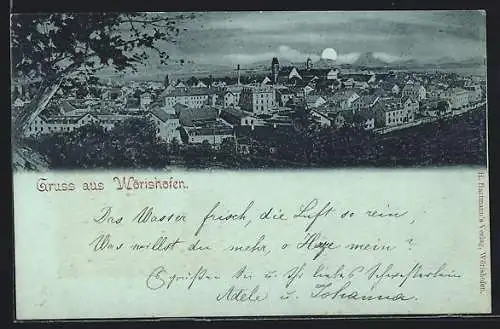 Gruss aus Wörishofen.
Das Wasser frisch, die Luft so rein,
Was willst du mehr, o Herze mein?
Es grüßen Sie u. Ihr liebes Schwesterlein
Adele u. Johanna.
H. Hartmann's Verlag, Wörishofen.